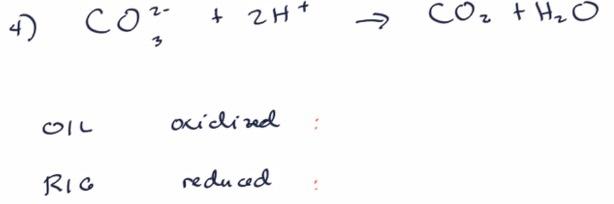 4) CO₃²⁻ + 2H⁺ → CO₂ + H₂O
OIL oxidized :
RIG reduced :